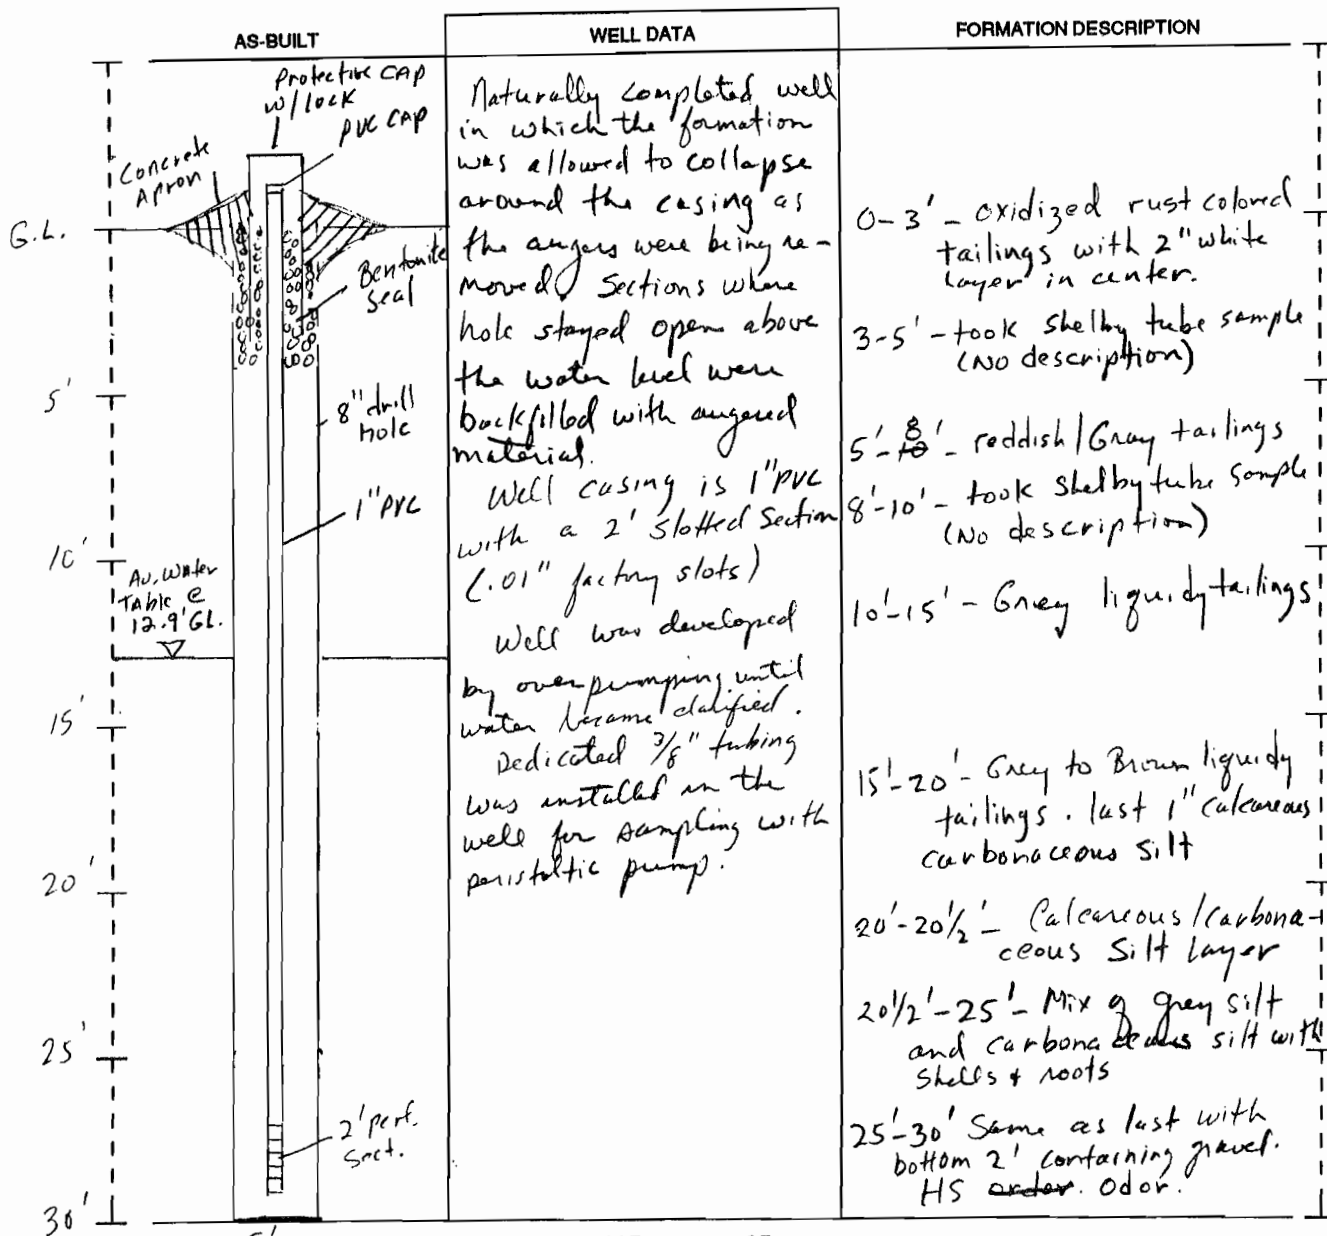 AS-BUILT
WELL DATA
FORMATION DESCRIPTION
Protective CAP
w/lock
PVC CAP
Concrete
Apron
G.L.
Bentonite
Seal
5'
8" drill
hole
1" PVC
10'
Av. Water
Table @
12.9' GL.
15'
20'
25'
2' perf.
Sect.
30'
Naturally completed well
in which the formation
was allowed to collapse
around the casing as
the augers were being re-
moved. Sections where
hole stayed open above
the water level were
backfilled with augered
material.
Well casing is 1" PVC
with a 2' slotted section
(.01" factory slots)
Well was developed
by overpumping until
water became clarified.
Dedicated 3/8" tubing
was installed in the
well for sampling with
peristaltic pump.
0-3' - oxidized rust colored
tailings with 2" white
layer in center.
3-5' - took Shelby tube sample
(No description)
5'-8' - reddish/Gray tailings
8'-10' - took Shelby tube sample
(No description)
10'-15' - Grey liquidy tailings
15'-20' - Grey to Brown liquidy
tailings. last 1" calcareous
carbonaceous silt
20'-20 1/2' - Calcareous/carbona-
ceous Silt Layer
20 1/2'-25' - Mix of grey silt
and carbonaceous silt with
shells + roots
25'-30' Same as last with
bottom 2' containing gravel.
HS order. Odor.